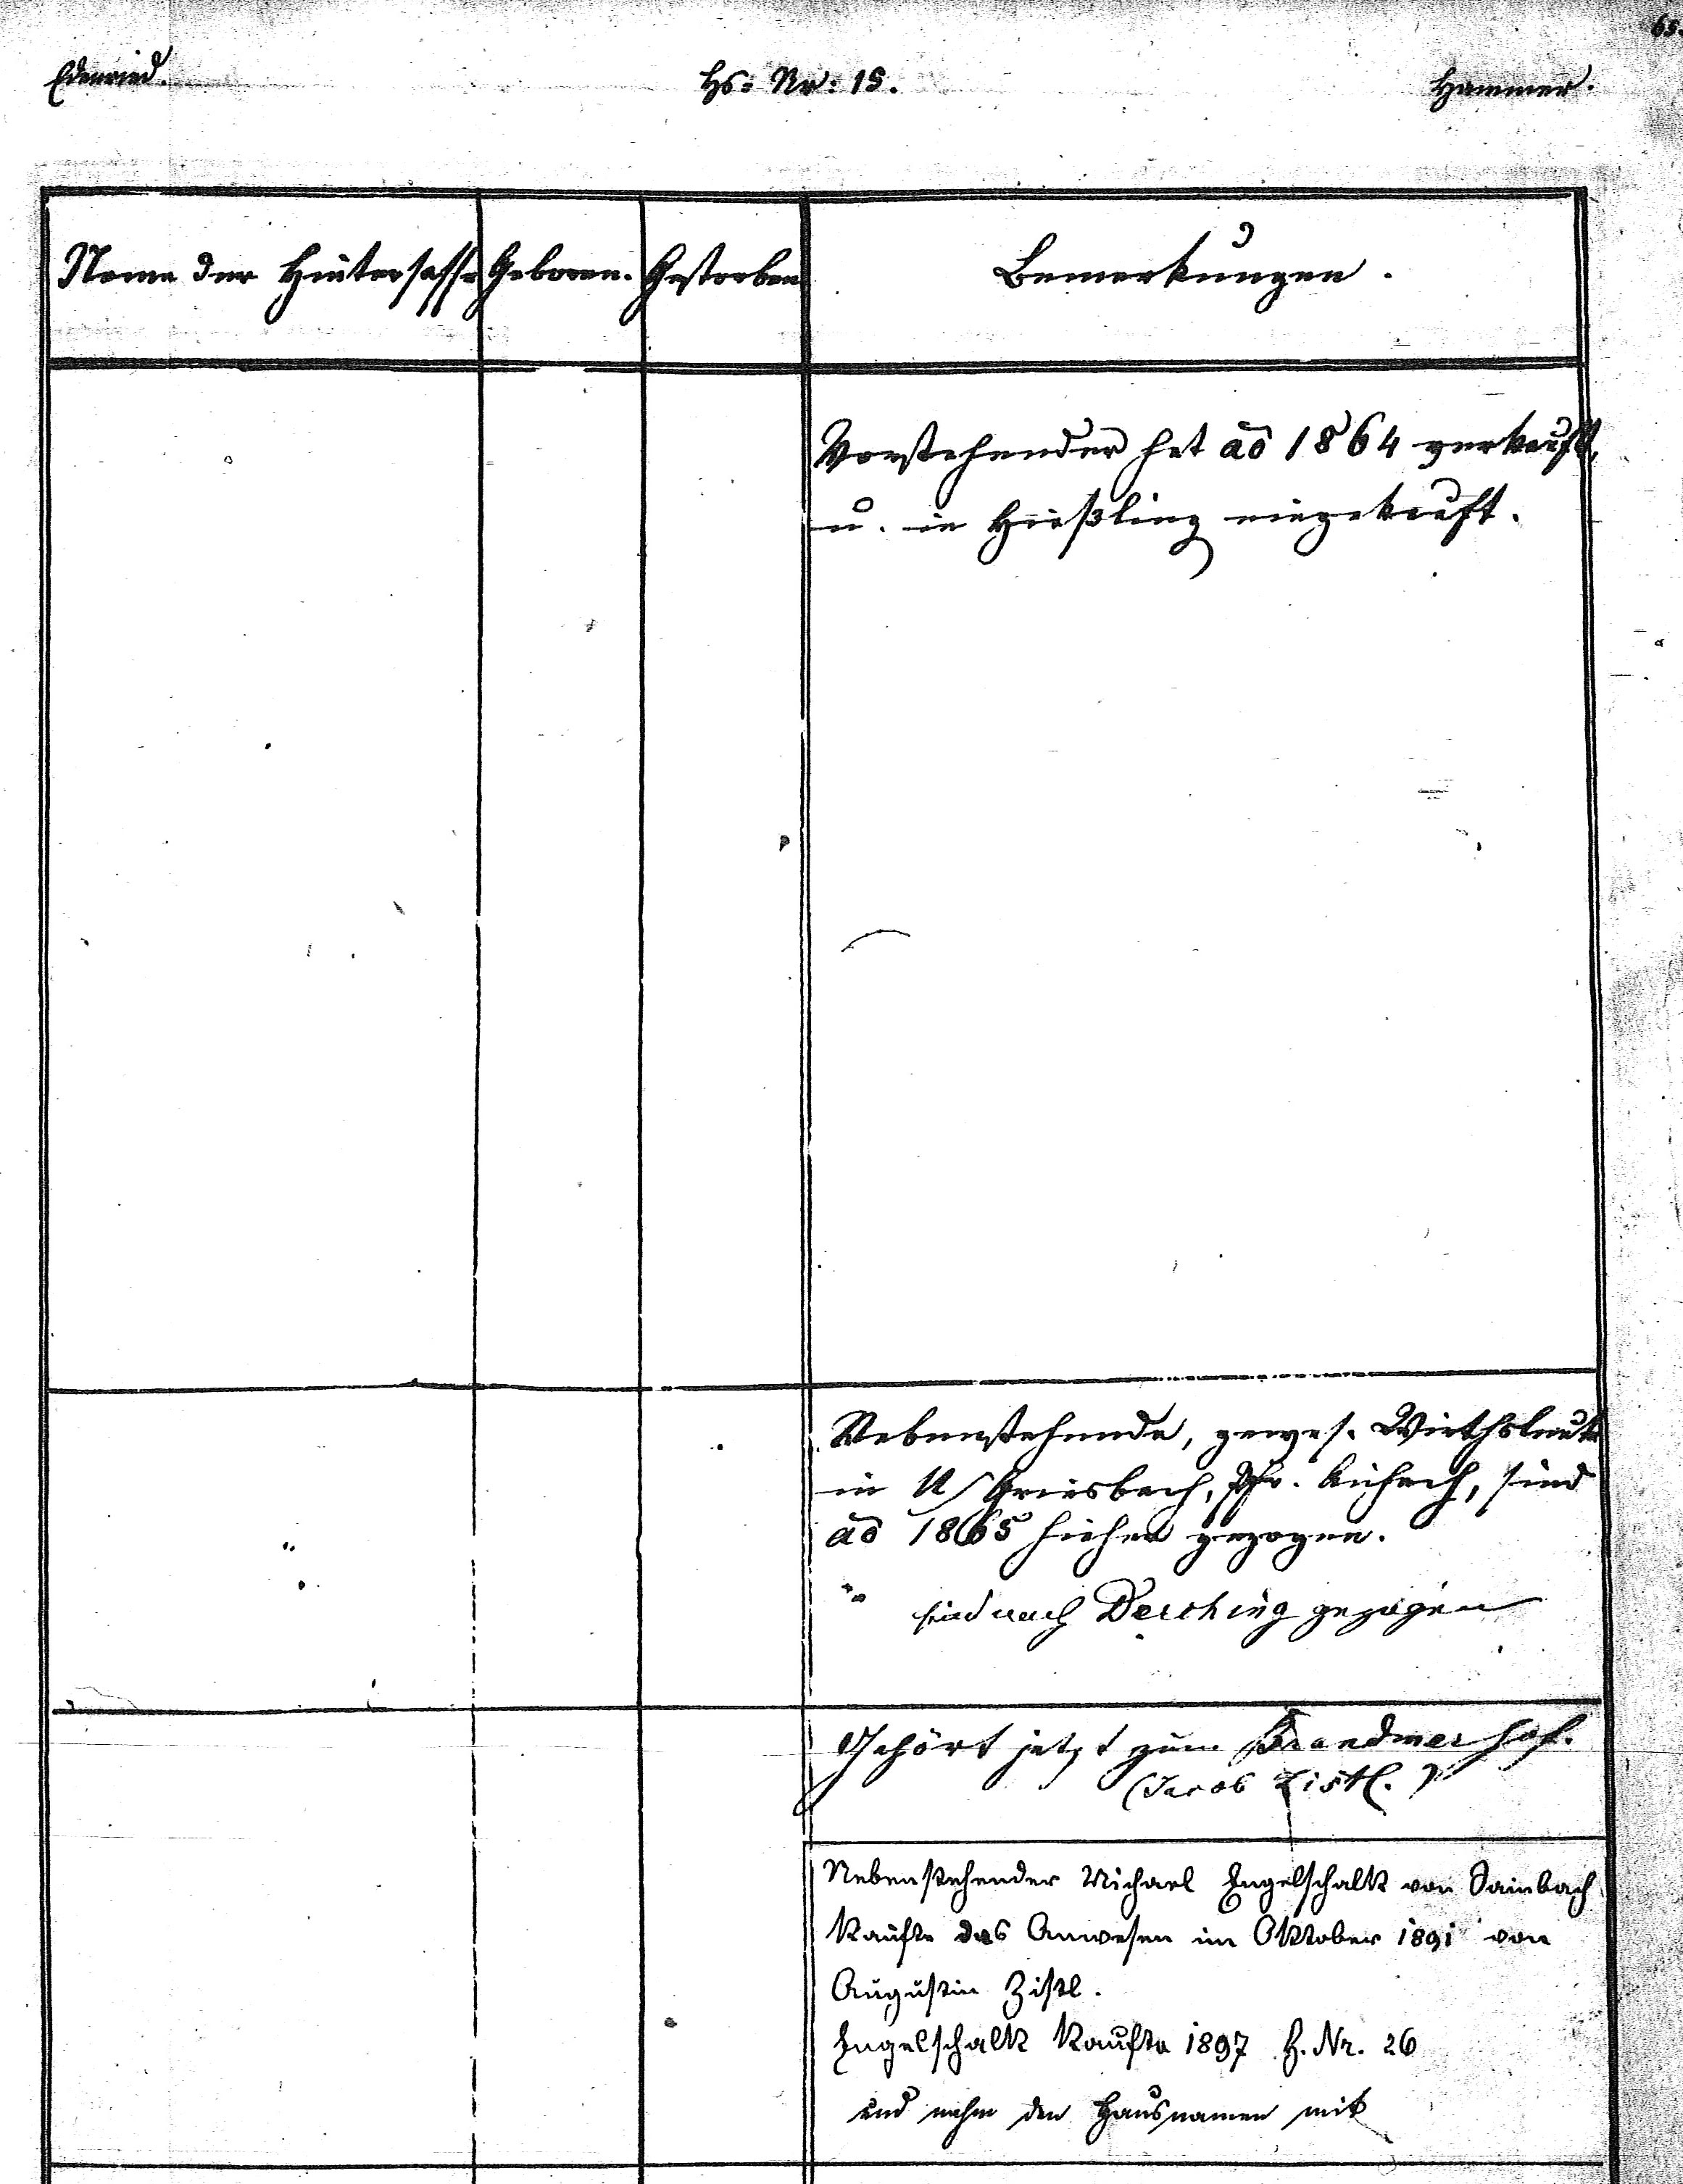 65.
Edenried.
Hs: Nr: 15.
Hammer.
Name der Hintersasse
Geboren.
Gestorben
Bemerkungen.
Vorstehender hat aō 1864 verkauft,
u. in Hießling eingekauft.
Nebenstehende, gewes. Wirthsleute
in U/Griesbach, Pfr. Aichach, sind
aō 1865 hieher gezogen.
" sind nach Derching gezogen
Gehört jetzt zum Brandmerhof.
(Jacob Zistl.)
Nebenstehender Michael Engelschalk von Sainbach
kaufte das Anwesen im Oktober 1891 von
Augustin Zistl.
Engelschalk kaufte 1897 H. Nr. 26
und nahm den Hausnamen mit